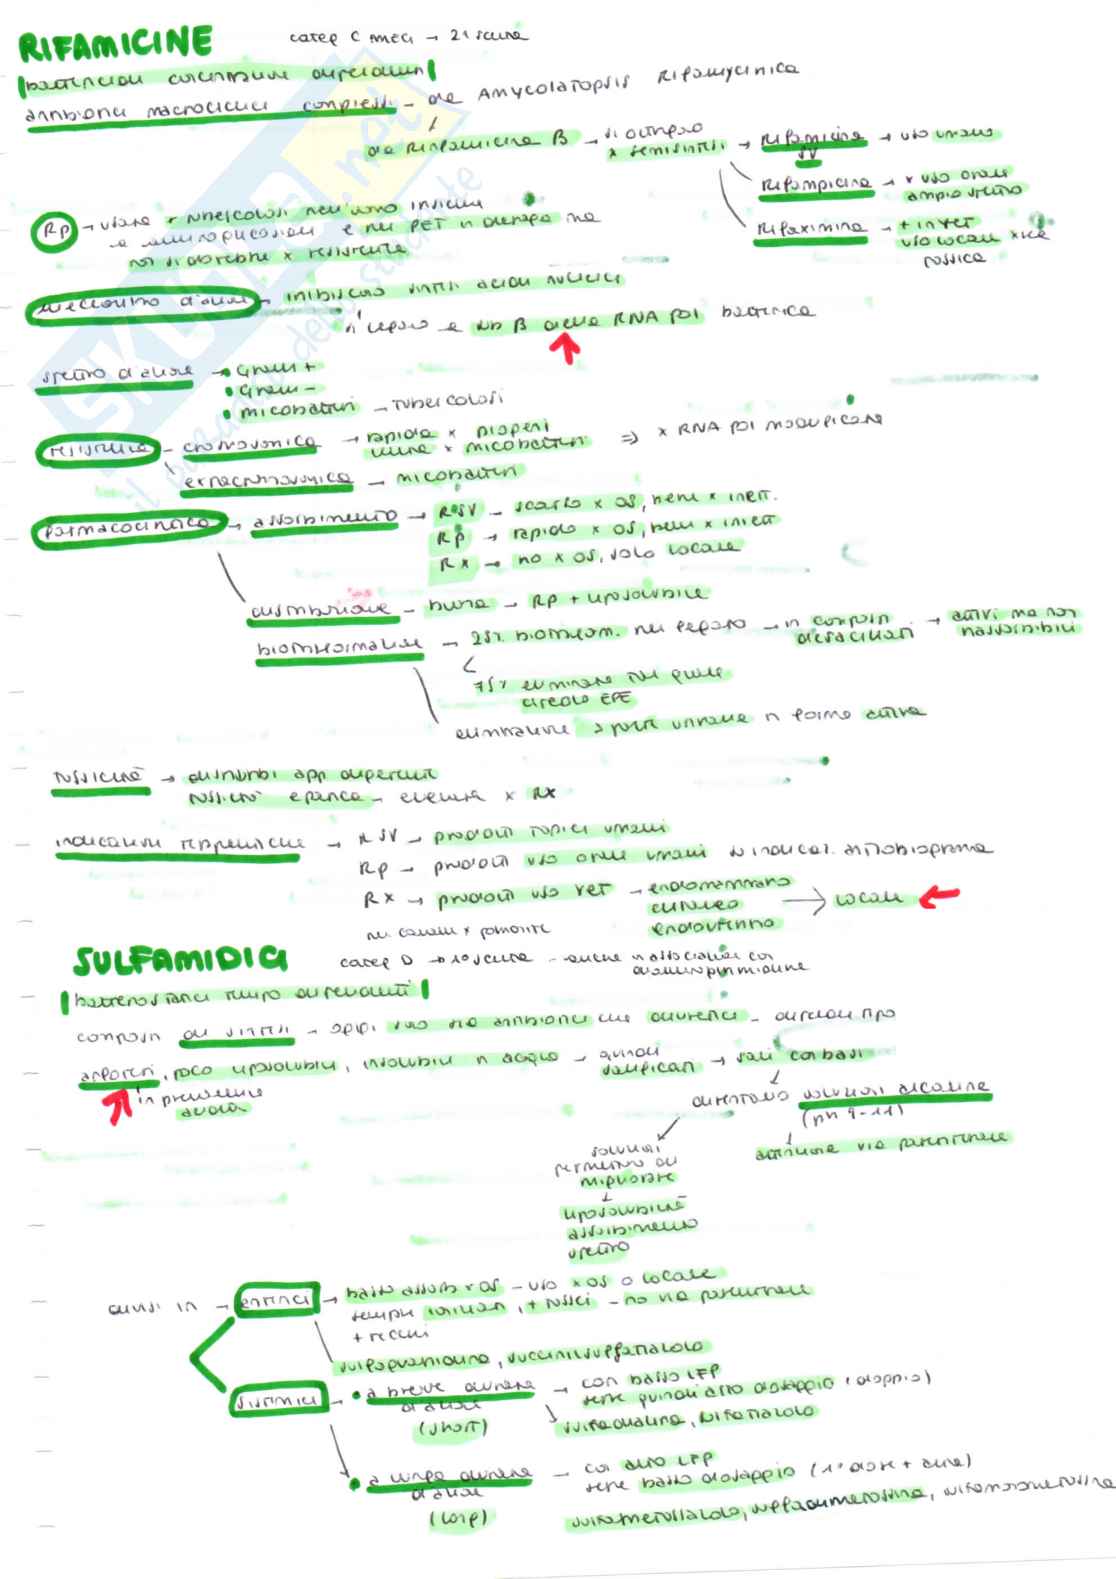 RIFAMICINE categ C AMEG → 21 scelta
battericidi concentrazione dipendenti
antibiotici macrociclici complessi – da AMYCOLATOPSIS RIFAMYCINICA
da Rifamicina B → si ottengono x semisintesi → Rifamicina SV → uso umano
Rifampicina → x uso orale ampio spettro
Rifaximina → + in vet uso locale
Rp → usare x tubercolosi nell'uomo insieme
a e nei PET in deroga ma
non si dovrebbe x resistenze
meccanismo d'azione → inibiscono sintesi acidi nucleici
si legano a sub B della RNA pol batterica
spettro d'azione → • Gram +
• Gram –
• micobatteri – tubercolosi
resistenza – cromosomica → rapida x
lenta x micobatteri ⇒ x RNA pol modificata
extracromosomica → micobatteri
farmacocinetica → assorbimento → RSV – scarso x os, bene x iniett.
Rp → rapido x os, bene x iniett
Rx → no x os, solo locale
distribuzione – buona → Rp + liposolubile
biotrasformazione → 25% biotrasform. nel fegato → in composti deacetilati → attivi ma non riassorbibili
75% eliminate nel
circolo EPE
eliminazione in forma attiva
tossicità → disturbi app digerente
tossicità epatica – x Rx
indicazioni terapeutiche → RSV → prodotti topici umani
Rp → prodotti uso orale umani su indicaz. antibiogramma
Rx → prodotti uso vet → endomammario
cutaneo → locale
endouterino
SULFAMIDICI categ D → 1° scelta – anche in associazione con
diaminopirimidine
batteriostatici tempo dipendenti
composti di sintesi – oggi uso sia antibiotici che diuretici –
anfoteri, poco liposolubili, insolubili in acqua → quindi salificati → sali con basi
in prevalenza
acida
diventano soluzioni alcaline
(pH 9-11)
soluzioni
permettono di
migliorare
via parenterale
liposolubilità
assorbimento
spettro
divisi in → enterici → basso assorb x os – uso x os o locale
sempre ionizzati, + tossici – no via parenterale
+ vecchi
sulfaguanidina, succinilsulfatiazolo
sistemici → • a breve durata → con basso LFP
d'azione serve quindi alto dosaggio (doppio)
(short) sulfatiazolo
• a lunga durata → con alto LFP
d'azione serve basso dosaggio
(long) sulfametossazolo, sulfadimetossina, sulfamonometossina